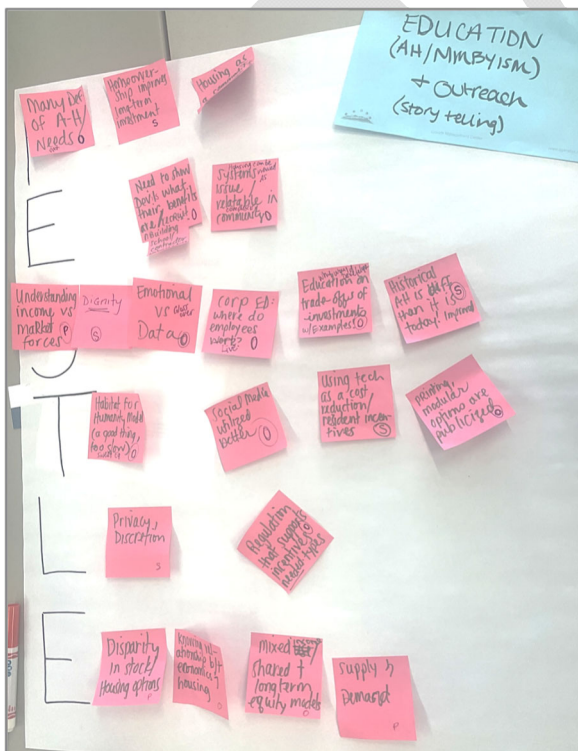 EDUCATION
(AH/NIMBYISM)
+ Outreach
(story telling)
Many Def
of A-H/
Needs O
Homeowner-
ship improves
long term
investment
S
Housing as
E
Need to show
Dev's what
their benefits
are/recruit O
Housing can be
Systems
issue /
relatable in
community O
Understanding
income vs
market
forces P
Dignity
S
Emotional
vs
Data O
Corp ED:
where do
employees
work?
Live O
Education on
trade-offs of
investments
w/Examples! O
Historical
AH is diff
than it is S
today!
T
Habitat for
Humanity Model
(a good thing,
too slow)
O
Social Media
utilized
better O
Using tech
as a cost
reduction/
resident incen-
tives S
printing,
modular
options are
publicized O
L
Privacy,
Discretion
S
Regulation
that supports
incentives
needed types
E
Disparity
in stock/
Housing options
P
Knowing rel-
ationship b/t
economics &
housing
O
mixed
shared +
longterm
equity models
O
Supply &
Demand
P